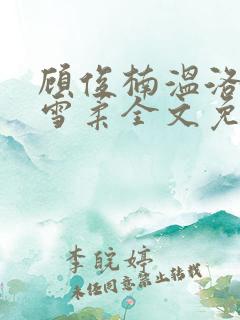 顾俊楠温洛
雪柔全文免
李皖婷
未经同意禁止转载